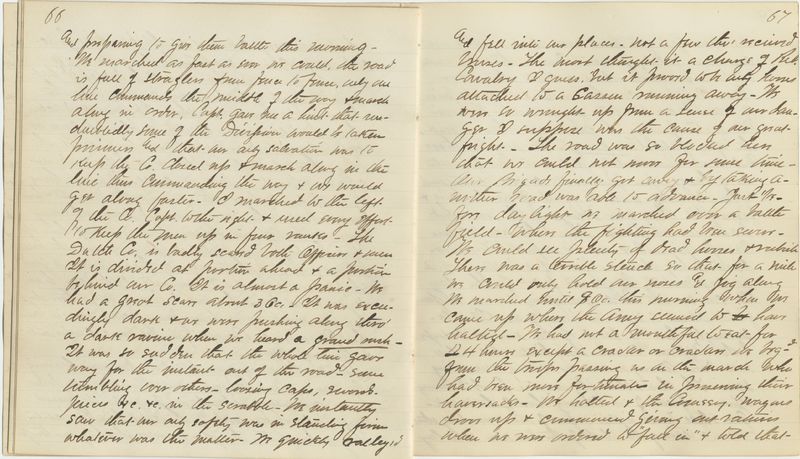 66
and preparing to give them battle this morning -
We marched as fast as ever we could. The road
is full of straglers from front to rear, only our
line commands the middle of the way & march
along in order. Capt. gave me a hint that un-
doubtedly some of the Division would be taken
prisoners and that our only salvation was to
keep the Co. closed up & march along in the
line thus commanding the way & we would
get along faster - I marched to the left
of the Co. Capt. to the right & used every effort
to keep the men up in four ranks - The
Co. is badly scared both Officers & men
It is divided a portion ahead & a portion
behind our Co. It is almost a panic - We
had a great scare about 3 Oc. It was excee-
dingly dark & we were pushing along thro'
a dark ravine when we heard a grand rush -
It was so sudden that the whole line gave
way for the instant out of the road - some
tumbling over others - losing caps, swords
&c. &c. in the scrabble - We instantly
saw that our only safety was in standing firm
whatever was the matter - We quickly rallyed
67
and fell into our places - not a few thus recieved
bruises - The most thought it a charge of Reb
Cavalry I guess. But it proved to be only horses
attached to a Cassen running away - We
were so wrought up from a sense of our dan-
ger I suppose was the cause of our great
fright - The road was so blocked here
that we could not move for some time -
Our Brigade finally got away & by taking a-
nother road was able to advance - Just be-
fore daylight we marched over a battle
field - Where the fighting had been severe -
We could see plenty of dead horses &
There was a terrible stench so that for a mile
we could only hold our noses & jog along
We marched until 8 Oc. this morning when we
came up where the Army seemed to have
halted - We had not a mouthful to eat for
24 hours except a cracker or crackers we beg'd
from the troops passing us on the march who
had been more fortunate in preserving their
haversacks - We halted & the Comissary wagons
drove up & commenced giving out rations
when we were ordered to "fall in" & told that